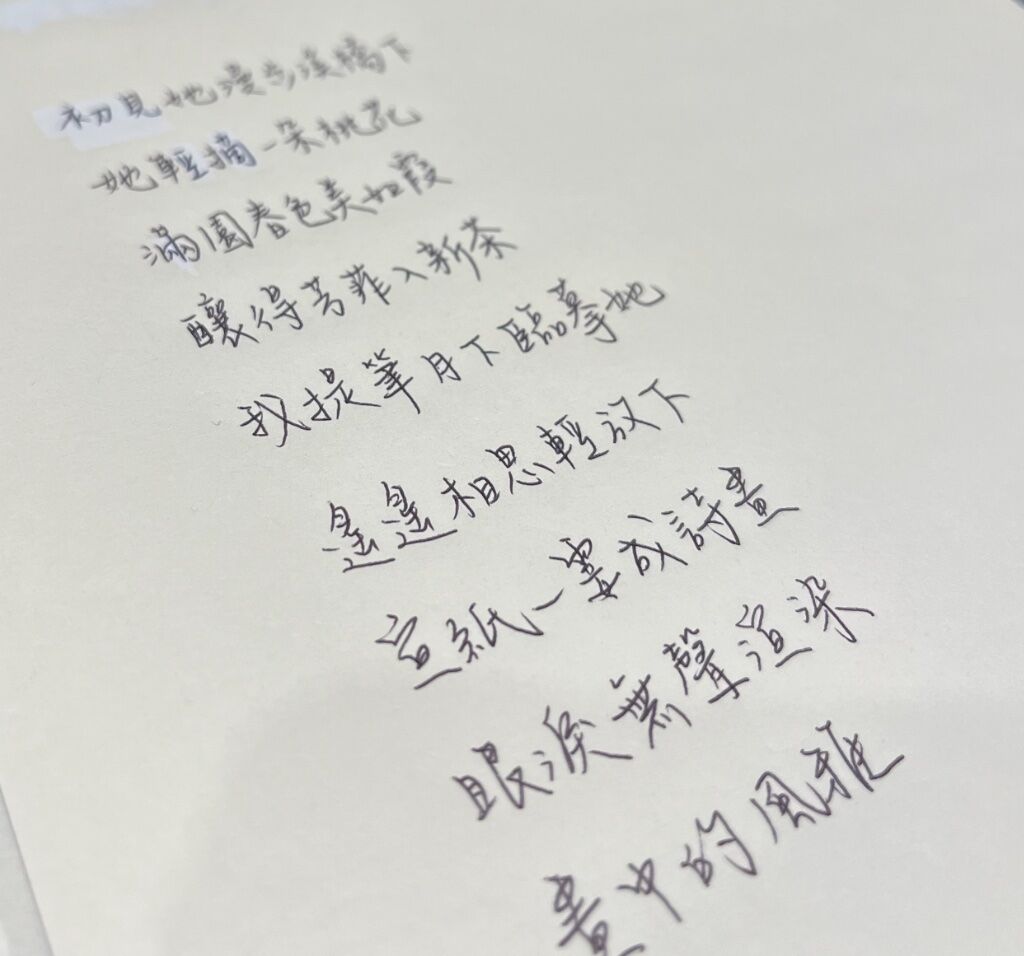 初見她漫步溪橋下
她輕摘一朵桃花
滿園春色美如霞
釀得芳菲入新茶
我提筆月下臨摹她
遙遙相思輕放下
宣紙一霎成詩畫
眼淚無聲渲染
畫中的風雅